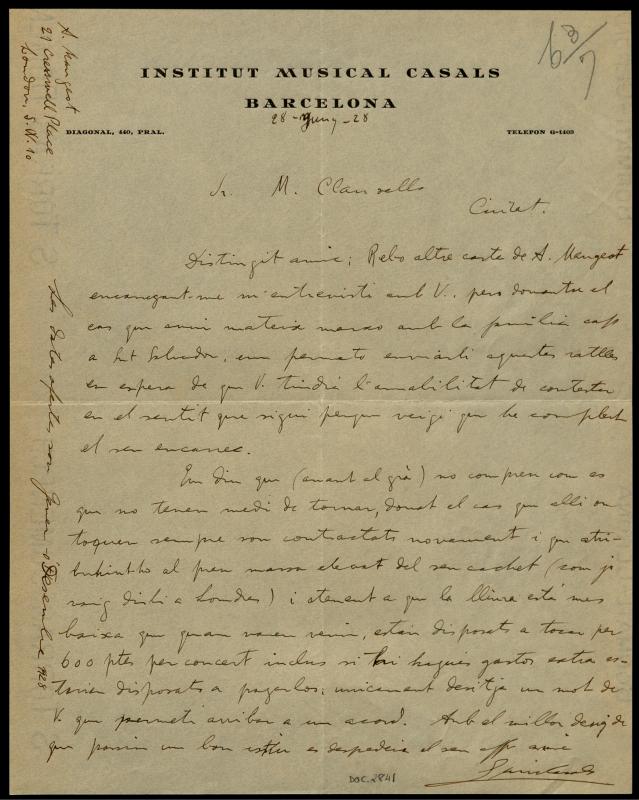 63/7
INSTITUT MUSICAL CASALS
BARCELONA
DIAGONAL, 440, PRAL.
TELEFON G-1403
28 - Juny - 28
Sr. M. Clausells
Ciutat.
Distingit amic; Rebo altre carta de A. Mangeot
encarregant-me m'entrevisti amb V., pero donantse el
cas que avui mateix marxo amb la familia cap
a St Salvador, em permeto enviarli aquestes ratlles
en espera de que V. tindrá l'amabilitat de contestar
en el sentit que sigui perque vegi que he complert
el seu encarrec.
Em diu que (anant al grà) no compren com es
que no tenen medi de tornar, donat el cas que alli on
toquen sempre son contractats novament i que atri-
buhintho al preu massa elevat del seu cachet (com ja
vaig dirli a Londres) i atenent a que la lliura está mes
baixa que quan varen venir, estan disposats a tocar per
600 ptes per concert inclus si hi hagués gastos extra es-
tarien disposats a pagarlos; unicament desitja un mot de
V. que permeti arribar a un acord. Amb el millor desig de
que passin un bon istiu es despedeix el seu affm amic
A. Mangeot
21 Cresswell Place
London, S.W. 10
Les dates ofertes son Janer o Desembre 1928
DOC. 2841